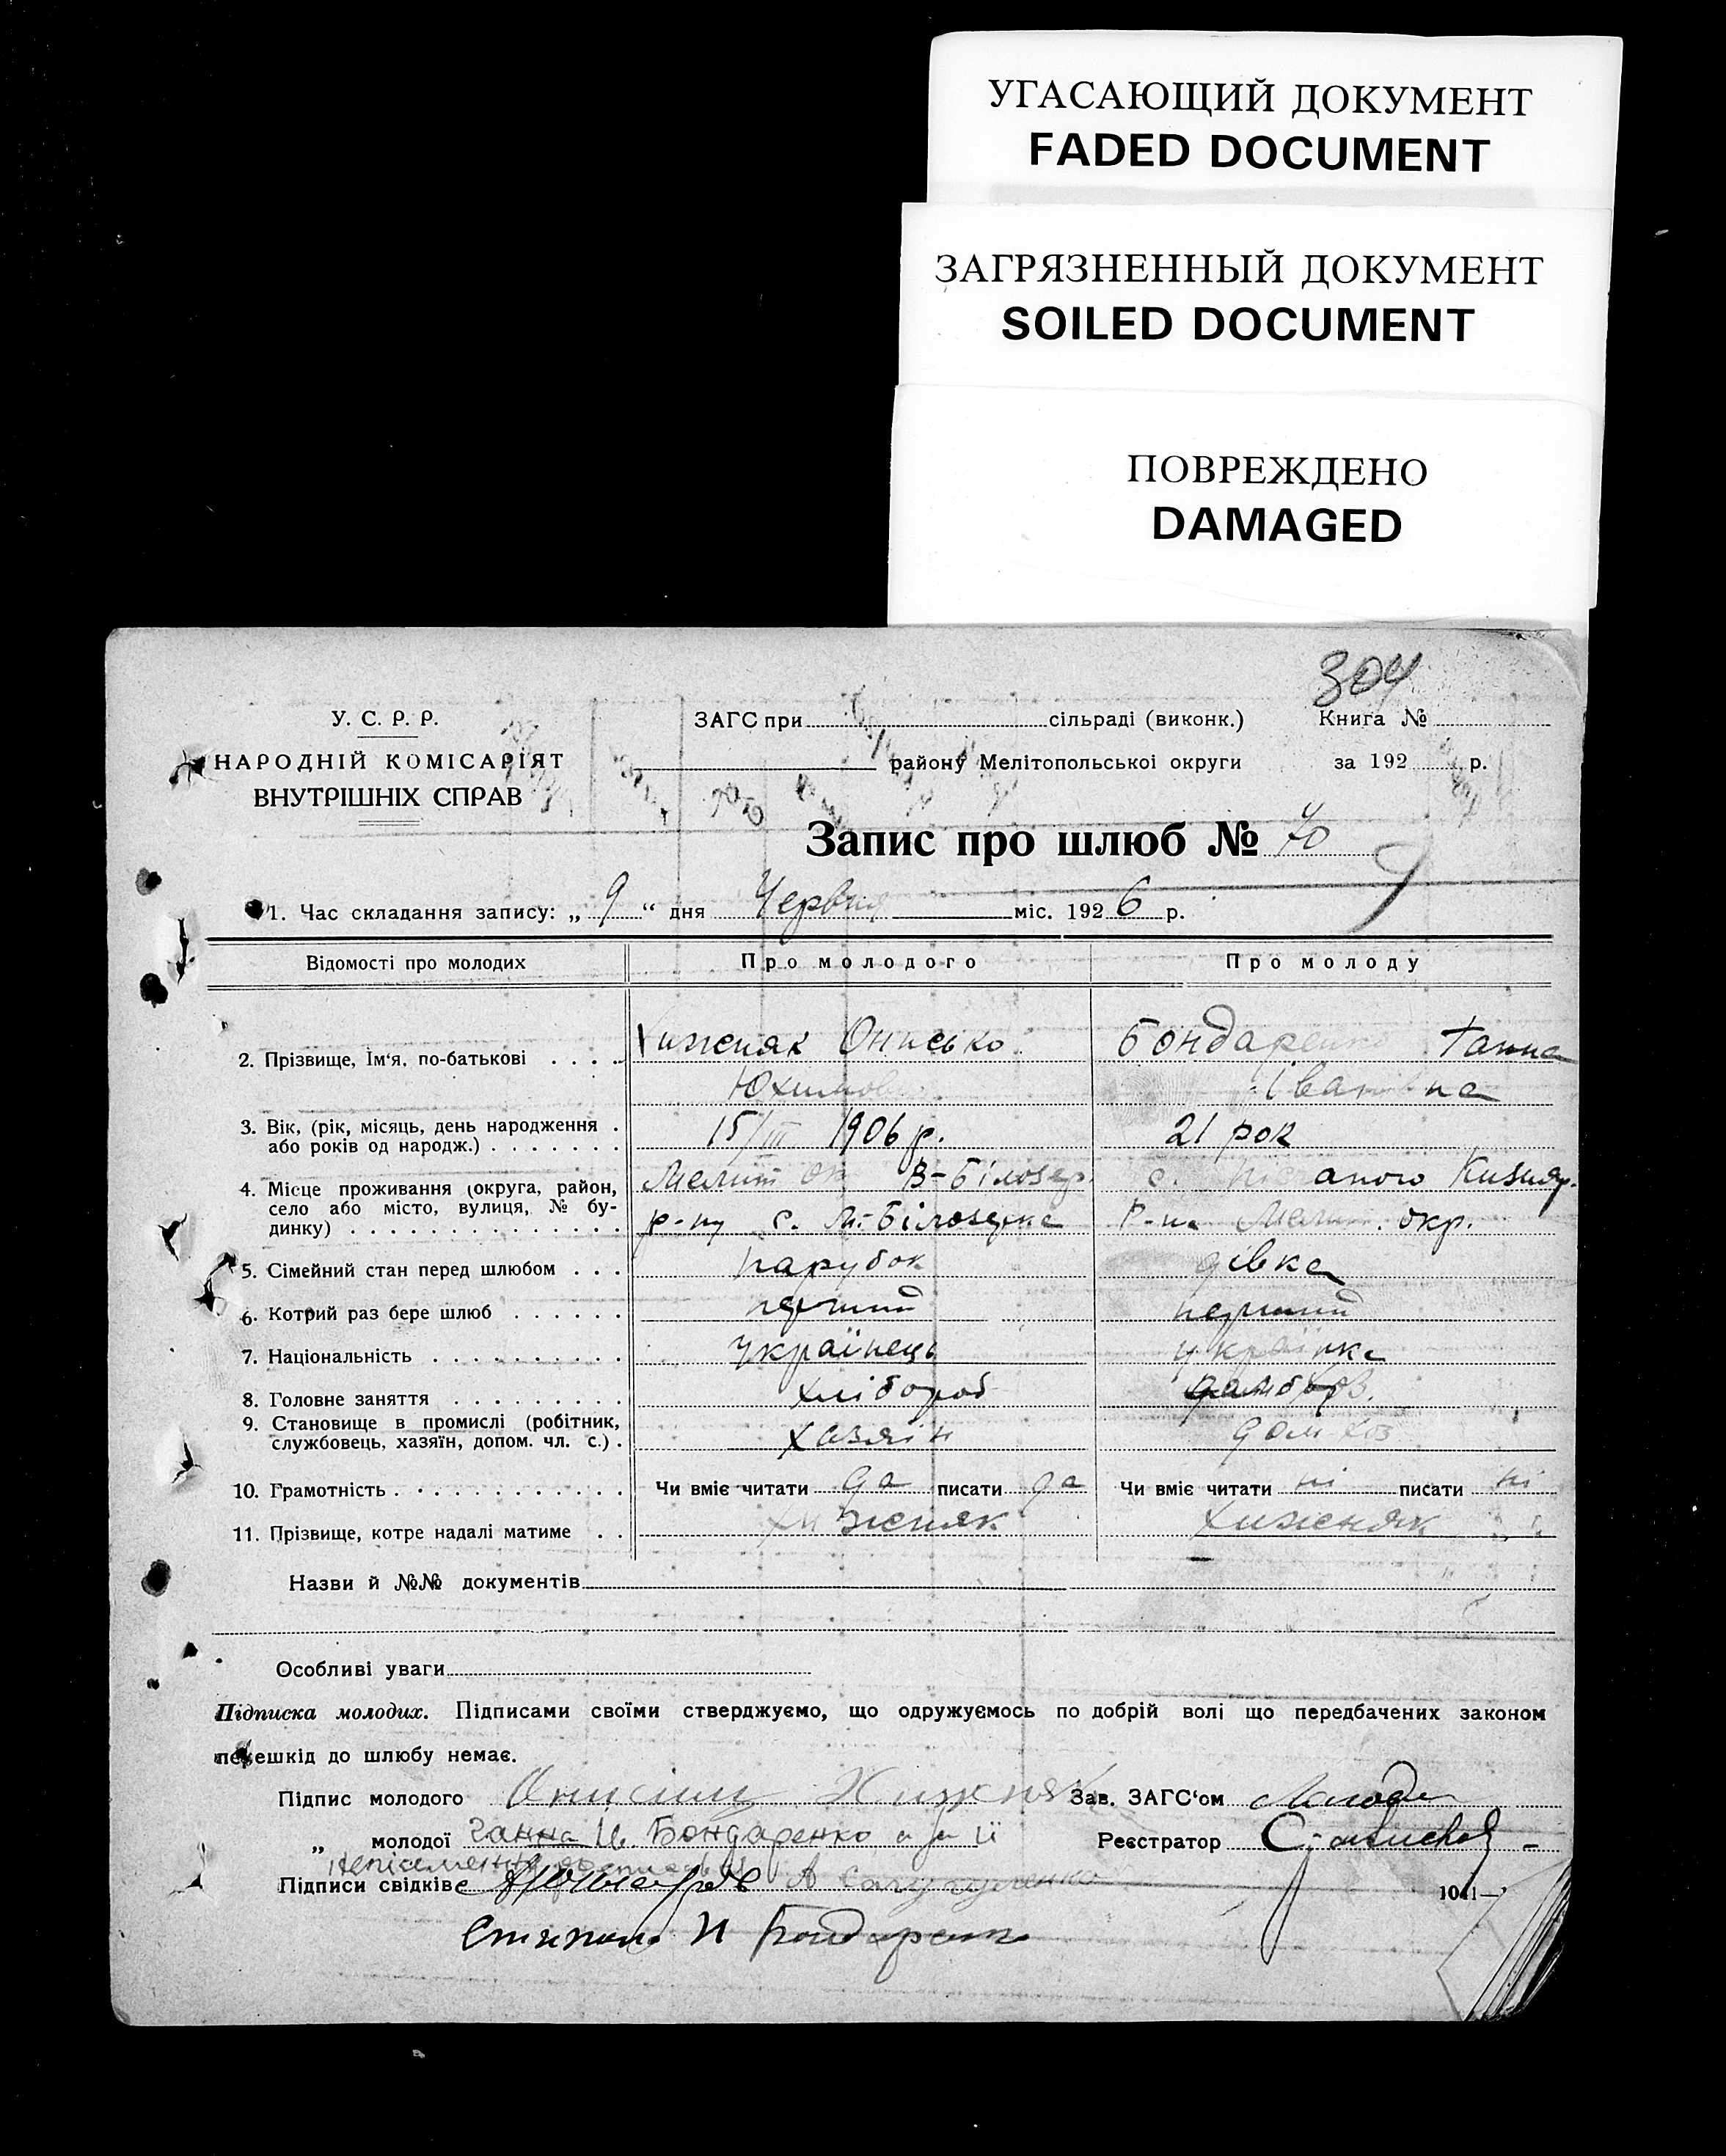 УГАСАЮЩИЙ ДОКУМЕНТ
FADED DOCUMENT
ЗАГРЯЗНЕННЫЙ ДОКУМЕНТ
SOILED DOCUMENT
ПОВРЕЖДЕНО
DAMAGED
304
У. С. Р. Р.
НАРОДНІЙ КОМІСАРІЯТ
ВНУТРІШНІХ СПРАВ
ЗАГС при сільраді (виконк.) Книга №
району Мелітопольської округи за 192 р.
Запис про шлюб № 70
1. Час складання запису: „ 9 “ дня Червня міс. 1926 р.
Відомості про молодих Про молодого Про молоду
2. Прізвище, Ім'я, по-батькові Хижняк Онисько Бондаренко Ганна
Юхимов Івановна
3. Вік, (рік, місяць, день народження або років од народж.) 15/III 1906 р. 21 рок
4. Місце проживання (округа, район, село або місто, вулиця, № будинку) Мелит ок В-Білозер. с. Пісчаного Кизияр.
р-ну с. М-Білозерка р-на Мелит. окр.
5. Сімейний стан перед шлюбом парубок дівка
6. Котрий раз бере шлюб перший перший
7. Національність українець українка
8. Головне заняття хлібороб
9. Становище в промислі (робітник, службовець, хазяїн, допом. чл. с.) хазяїн дом хоз
10. Грамотність Чи вміє читати да писати да Чи вміє читати ні писати ні
11. Прізвище, котре надалі матиме Хижняк Хижняк
Назви й №№ документів
Особливі уваги
Підписка молодих. Підписами своїми стверджуємо, що одружуємось по добрій волі що передбачених законом
перешкід до шлюбу немає.
Підпис молодого Онисим Хижняк Зав. ЗАГС'ом
„ молодої Ганна Ив. Бондаренко а за її Реєстратор
Підписи свідків
И Бондаренко